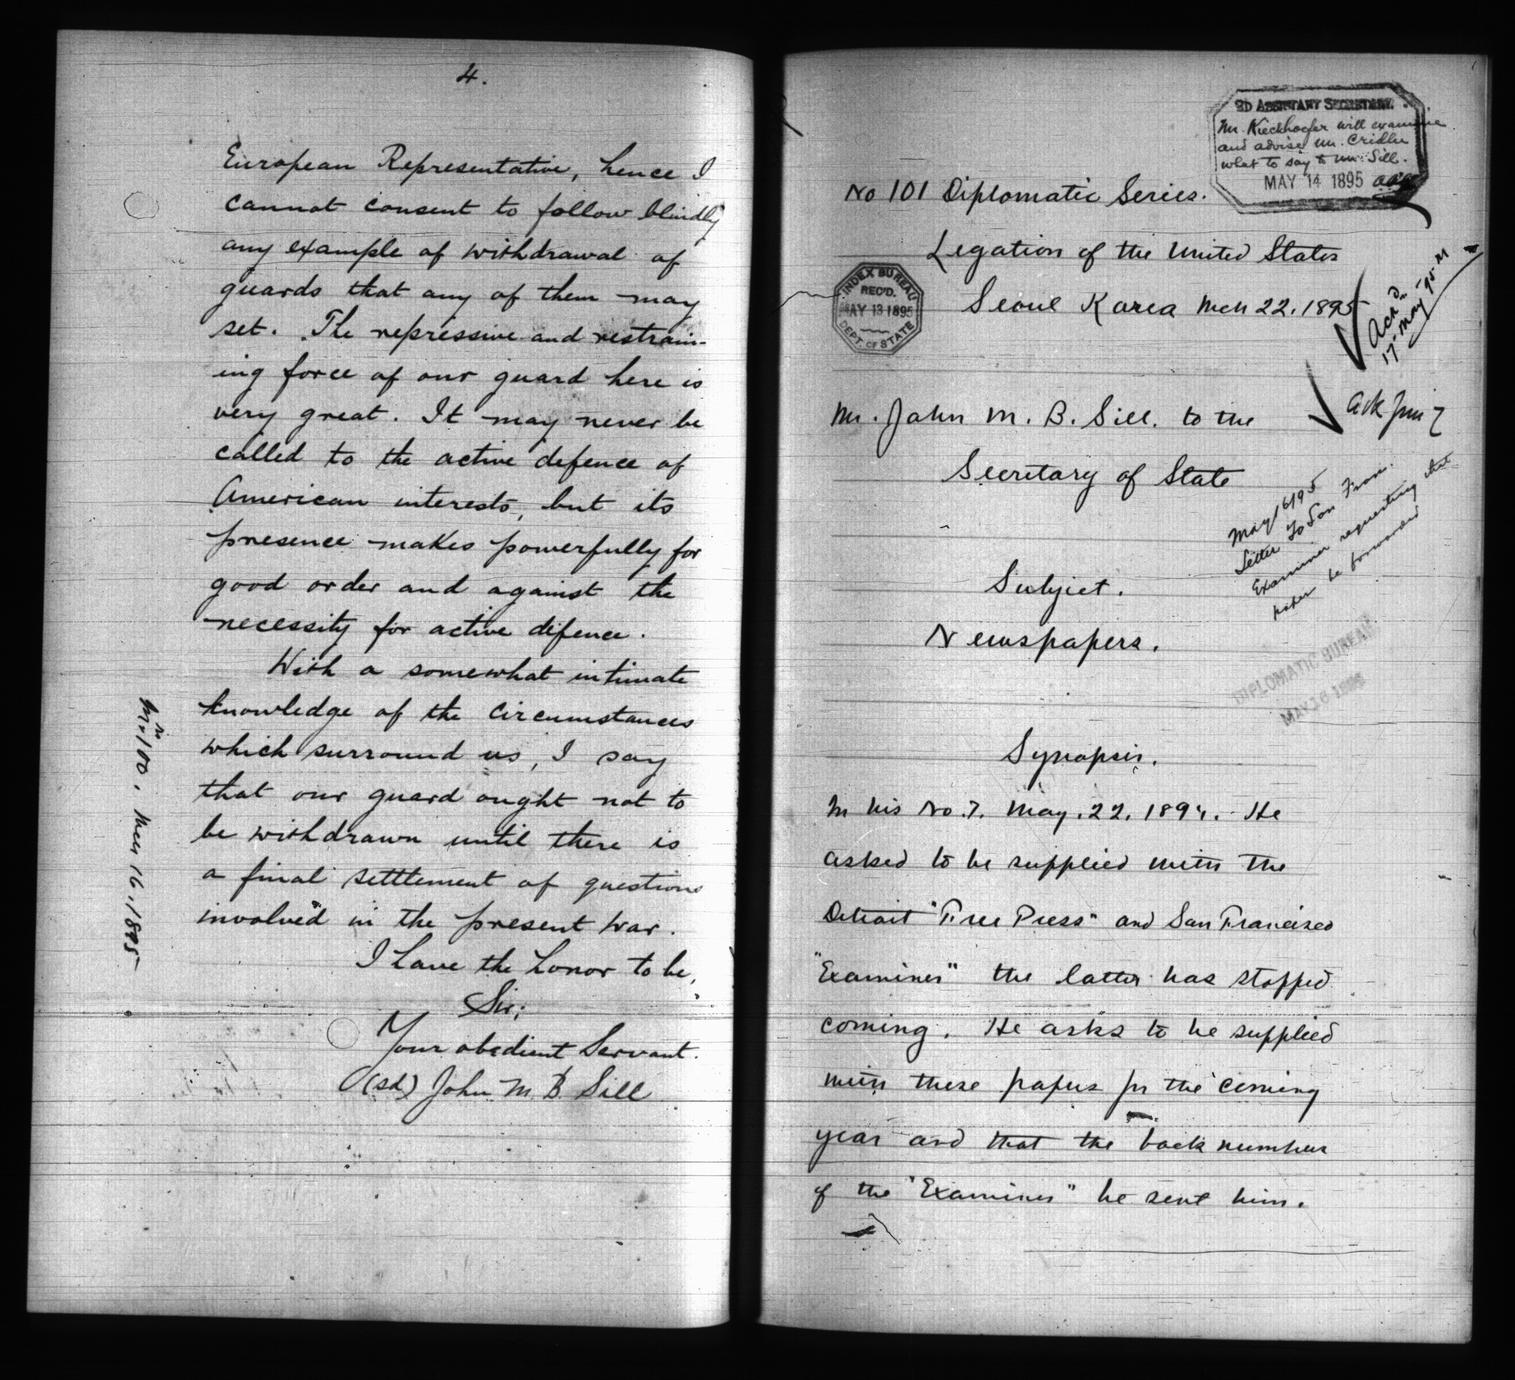 4.
European Representative, hence I
cannot consent to follow blindly
any example of withdrawal of
guards that any of them may
set. The repressive and restrain-
ing force of our guard here is
very great. It may never be
called to the active defence of
American interests, but its
presence makes powerfully for
good order and against the
necessity for active defence.
With a somewhat intimate
knowledge of the circumstances
which surround us, I say
that our guard ought not to
be withdrawn until there is
a final settlement of questions
involved in the present war.
I have the honor to be,
Sir;
Your obedient Servant.
(sd) John M. B. Sill
100, Mch 16, 1895
2D ASSISTANT SECRETARY.
Mr. Kieckhoefer will examine
and advise Mr. Cridler
what to say to Mr. Sill.
MAY 14 1895 AAA
No 101 Diplomatic Series.
Legation of the United States
Seoul Korea Mch 22, 1895
INDEX BUREAU
REC'D.
MAY 13 1895
DEPT. OF STATE
Ackd
17 May '95
Mr. John M. B. Sill. to the
Ack June 7
Secretary of State
May 16/95
Letter to San Fran.
Examiner requesting that
paper be forwarded
Subject.
Newspapers.
DIPLOMATIC BUREAU
MAY 16 1895
Synopsis.
In his No. 7. May. 22. 1894. He
asked to be supplied with the
Detroit "Free Press" and San Francisco
"Examiner" the latter has stopped
coming. He asks to be supplied
with these papers for the coming
year and that the back number
of the "Examiner" be sent him.